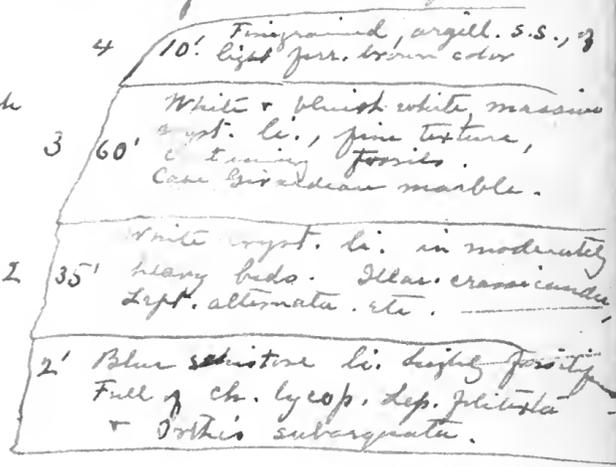 4 10'. Finegrained, argill. s.s., of
light ferr. brown color
White & bluish white, massive
cryst. li., fine texture,
3 60' containing fossils.
Cape Girardeau marble.
White cryst. li. in moderately
2 35' heavy beds. Illae. crassicauda,
Lept. alternata. etc.
2' Blue li. highly fossilif
Full of ch. lycop. Lep.
& Orthis subaequata.